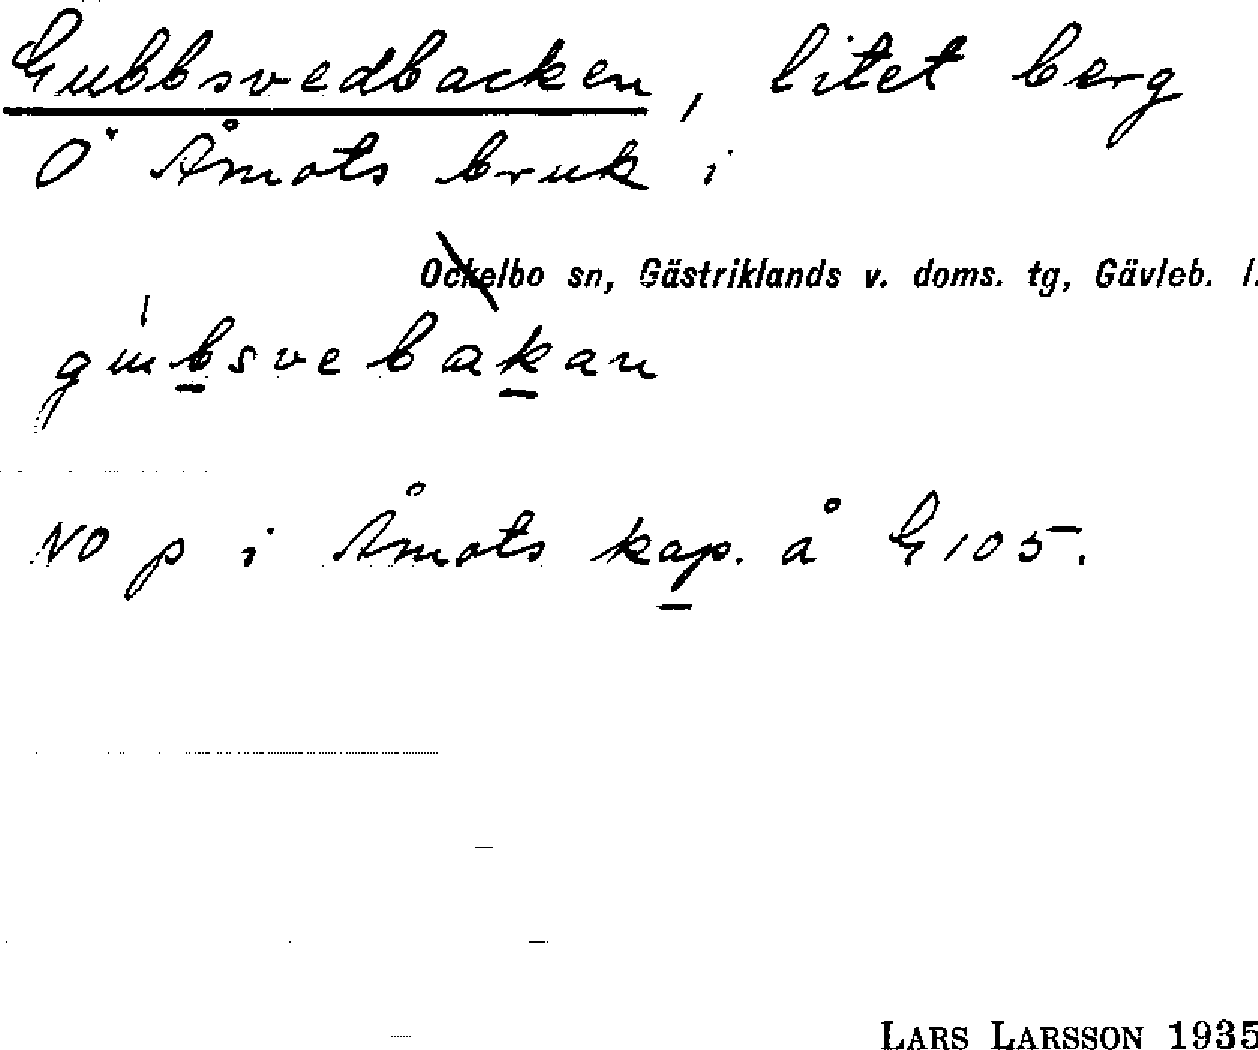 Gubbsvedbacken, litet berg
Ö Åmots bruk i
Ockelbo sn, Gästriklands v. doms. tg, Gävleb. l.
NO p i Åmots kap. å G 105.
LARS LARSSON 1935